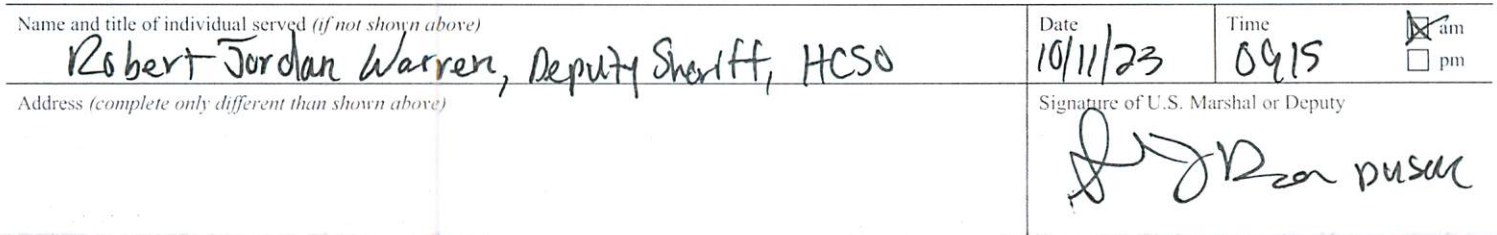 Name and title of individual served (if not shown above)
Robert Jordan Warren, Deputy Sheriff, HCSO
Date
10/11/23
Time
0915
am
pm
Address (complete only different than shown above)
Signature of U.S. Marshal or Deputy
DUSM